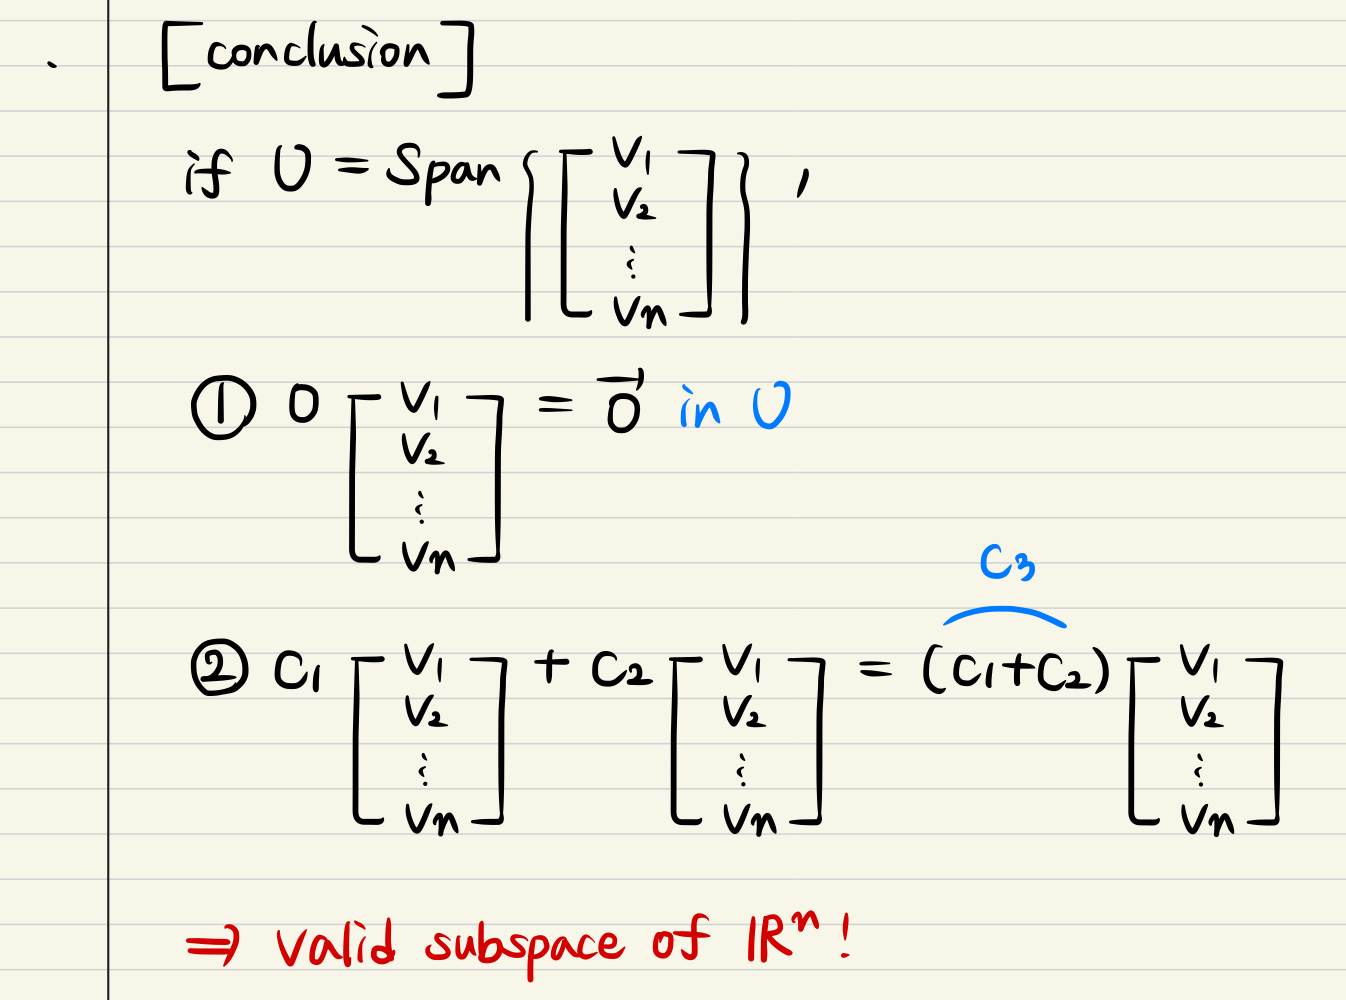 [conclusion]
if U = Span { [ V₁ V₂ ⋮ Vn ] } ,
① 0 [ V₁ V₂ ⋮ Vn ] = 0⃗ in U
C₃
② C₁ [ V₁ V₂ ⋮ Vn ] + C₂ [ V₁ V₂ ⋮ Vn ] = (C₁+C₂) [ V₁ V₂ ⋮ Vn ]
⇒ valid subspace of ℝⁿ!